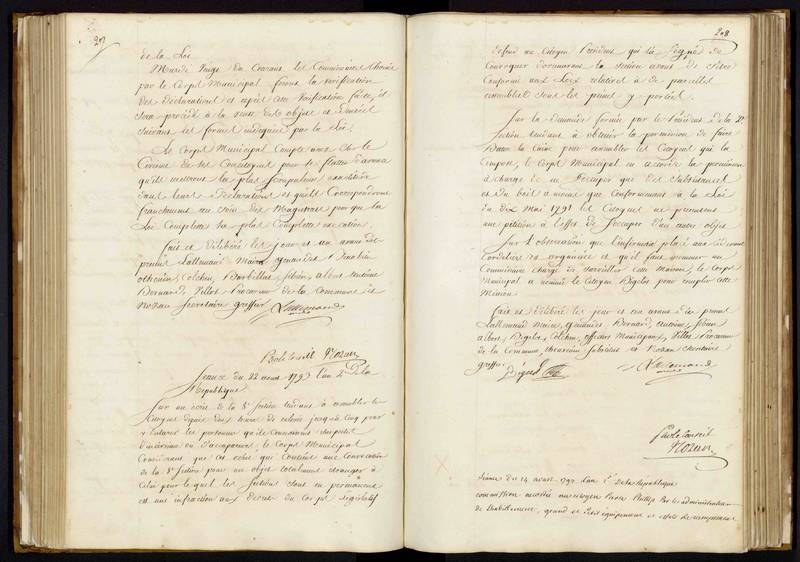 207
de la Loi
par le Corps Municipal feront la verification
des Declarations et après cette verification faite, il
sera procédé à la vente des objets
suivant les formes indiquées par la Loi.
Le Corps Municipal Compte avec
Civisme de ses Concitoyens pour se
qu'ils mettront la plus scrupuleuse exactitude
dans leurs Declarations et qu'ils Correspondront
franchement au soin des Magistrats pour que la
Loi Complette sa plus Complette execution.
fait et délibéré les jour et an avant dits
present Lallemand Maire,
Bernard, Pillot Procureur de la Commune et
Nozan Secretaire greffier Lallemand
Par le Conseil Nozan
Seance du 22 aout 1793 l'an 2e De la
République
Sur un écrit de la 8e Section tendant à assembler les
Citoyens depuis deux heures de relevée jusqu'à cinq pour
y Entendre les personnes qu'ils Connoissent suspectes
D'incivisme ou D'accapareurs, le Corps Municipal
Considerant que cet écrit qui Contient une Convocation
de la 8e Section pour un objet totalement étranger à
Celui pour lequel les Sections sont en permanence
est une infraction aux decrets du Corps Législatif
208
defend au Citoyen President qui l'a Signée de
Convoquer dorenavant la Section avant de s'être
Conformé aux Loix relatives à de pareilles
assemblées sous les peines y portées.
Sur la demande formée par le Président de la 2e
Section tendant à obtenir la permission de faire
Battre la Caisse pour assembler les Citoyens qui la
Compose, le Corps Municipal en accorde la permission
à charge de ne s'occuper que des Subsistances
et du bois à moins que Conformement à la Loi
du dix Mai 1791 les Citoyens ne presentent
une pétition à l'effet de s'occuper d'un autre objet
Sur L'observation que l'infirmerie placée aux cidevant
Cordeliers va organisée et qu'il faut nommer un
Commissaire Chargé de surveiller cette Maison, le Corps
Municipal a nommé le Citoyen Bigelot pour remplir cette
Mission
fait et délibéré les jour et an avant dits present
Lallemand maire, Bernard, antoine,
albert, Bigelot, Colchen, officiers Municipaux, Pillot Procureur
de la Commune, substitut et Nozan Secretaire
greffier
Lallemand
Par le Conseil
Nozan
Séance du 24 aout 1793 L'an 2e De la Republique
commission accordée au citoyen Pierre Phillip Par les administrateurs
de l'habillement, grand et Petit équipement et effets de campement